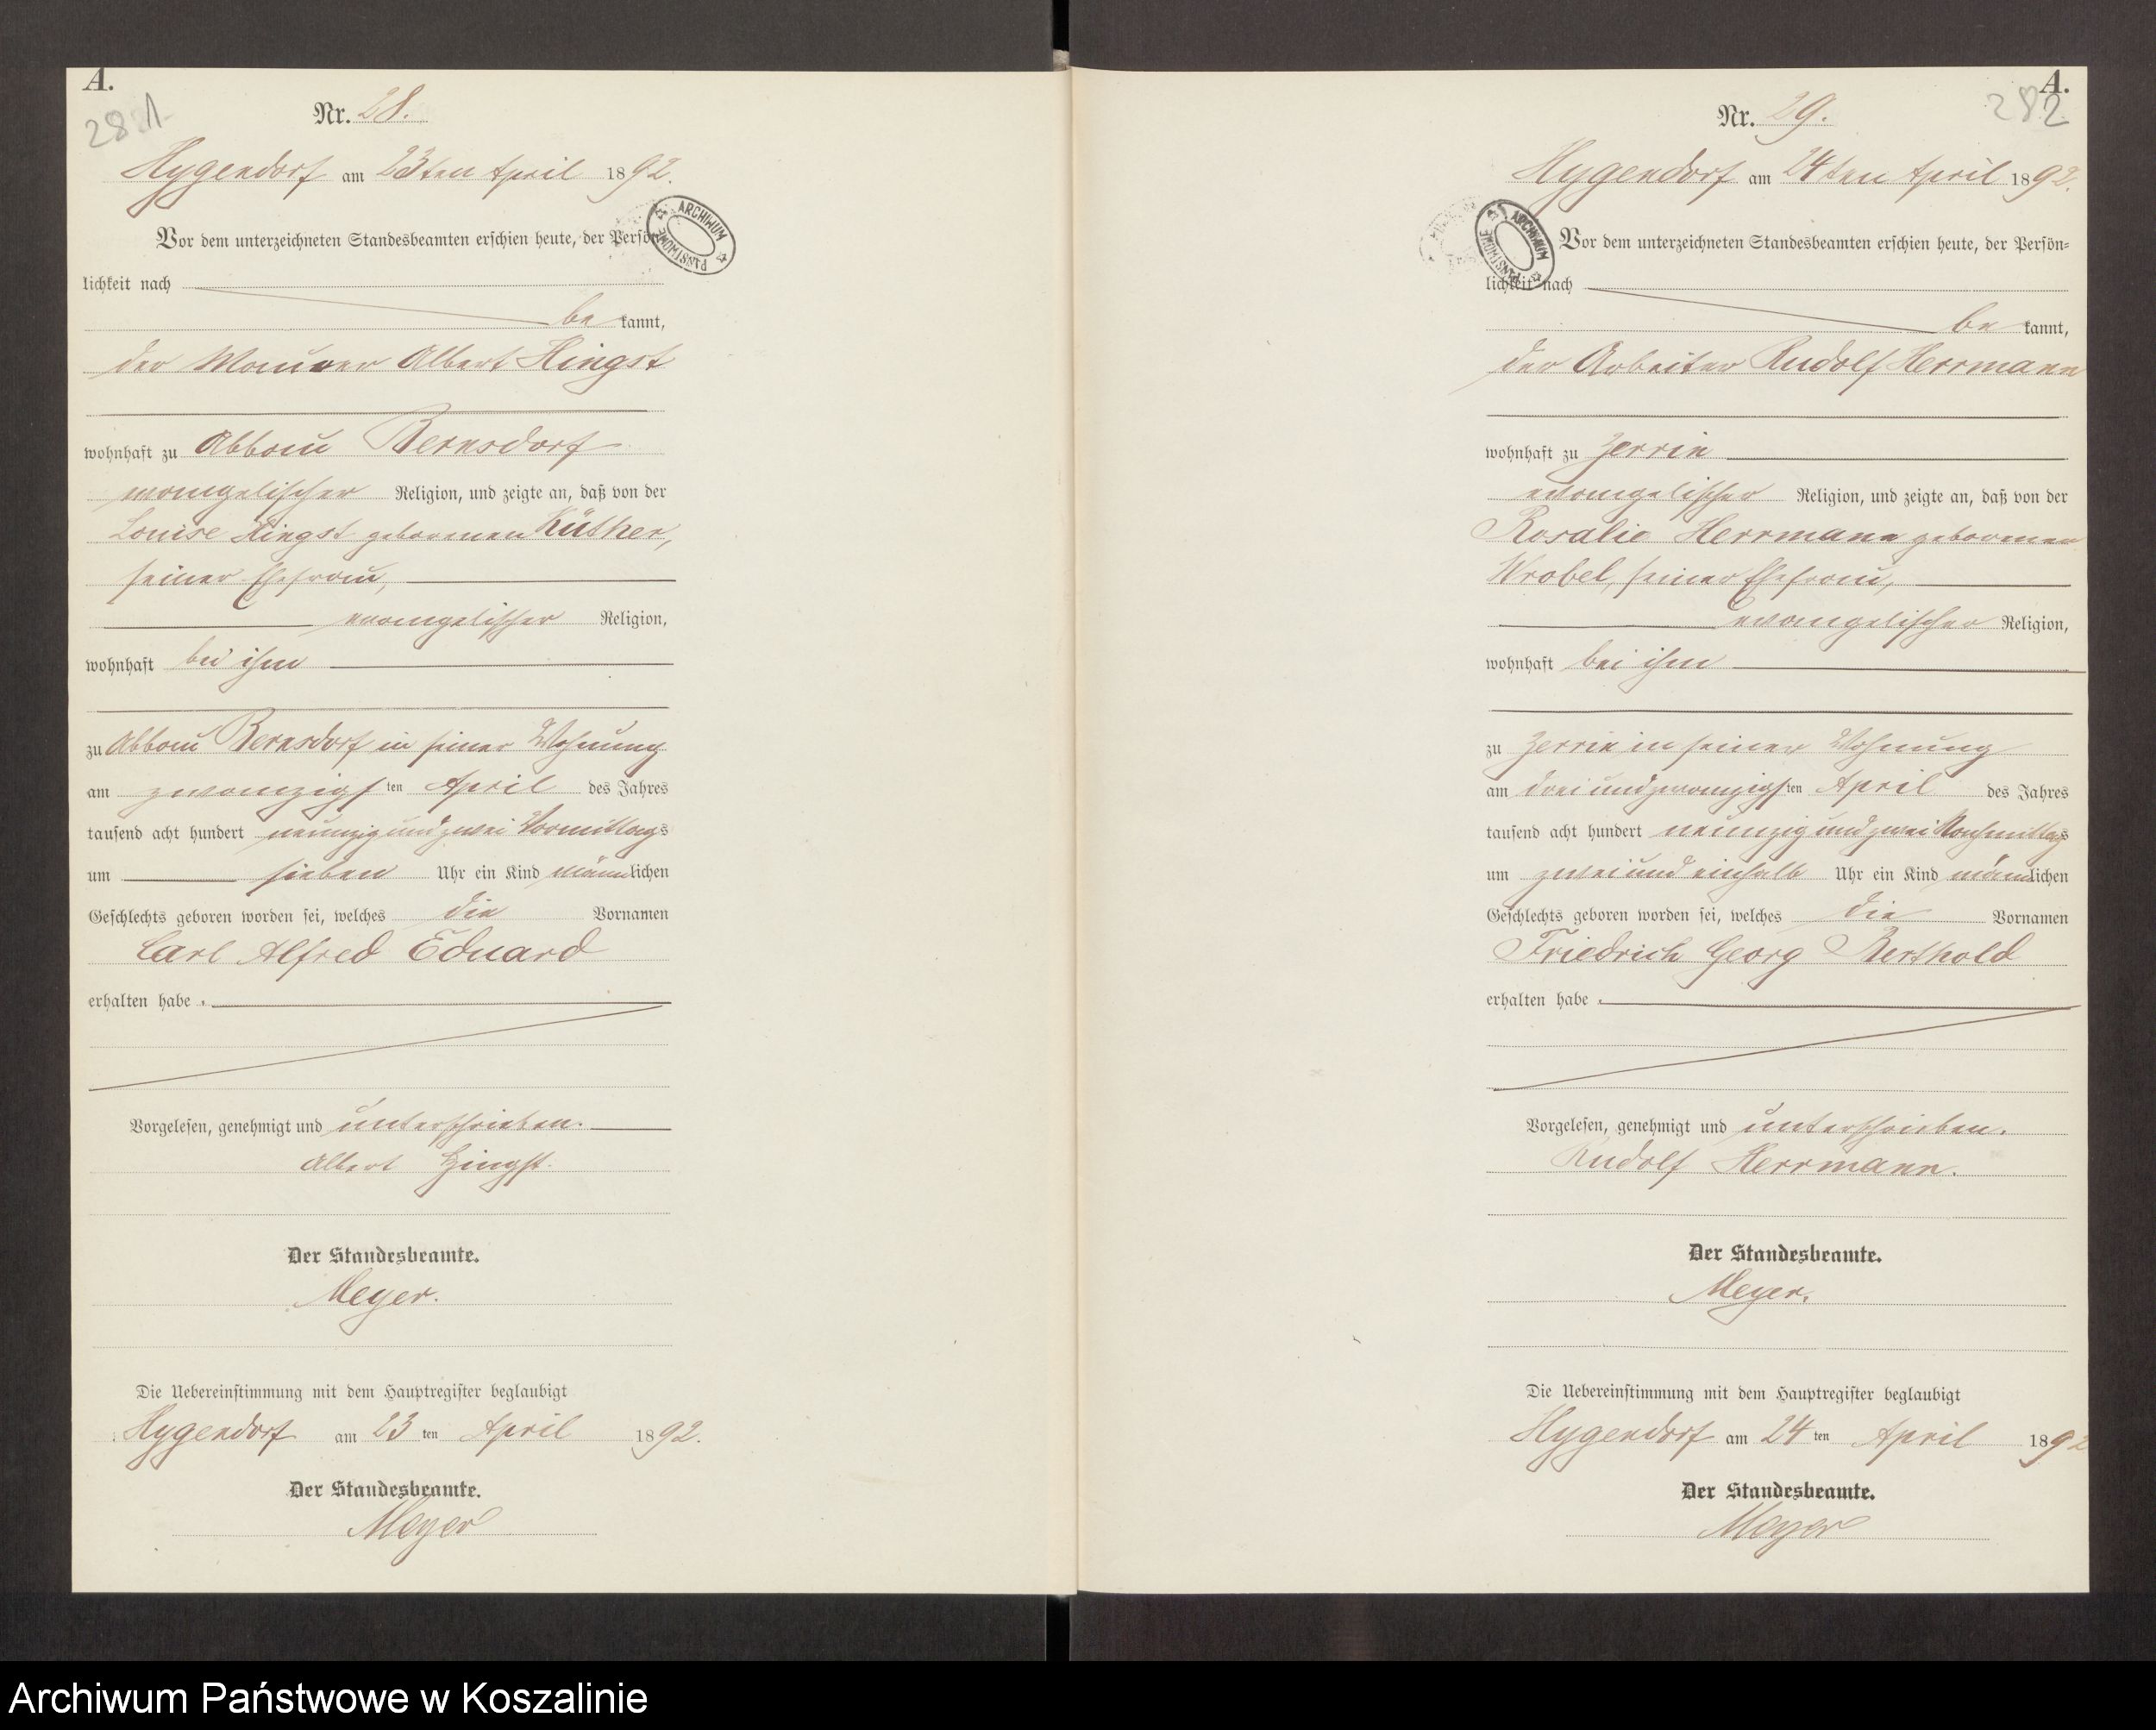 A.
281
Nr. 28.
Hygendorf am 23ten April 1892.
Vor dem unterzeichneten Standesbeamten erschien heute, der Persön-
lichkeit nach
be kannt,
der Maurer Albert Hingst
wohnhaft zu Abbau Bernsdorf
evangelischer Religion, und zeigte an, daß von der
Louise Hingst geborenen Küther,
seiner Ehefrau,
evangelischer Religion,
wohnhaft bei ihm
zu Abbau Bernsdorf in seiner Wohnung
am zwanzigsten April des Jahres
tausend acht hundert neunzig und zwei Vormittags
um sieben Uhr ein Kind männlichen
Geschlechts geboren worden sei, welches die Vornamen
Carl Alfred Eduard
erhalten habe.
Vorgelesen, genehmigt und unterschrieben.
Albert Hingst.
Der Standesbeamte.
Meyer.
Die Uebereinstimmung mit dem Hauptregister beglaubigt
Hygendorf am 23ten April 1892.
Der Standesbeamte.
Meyer
ARCHIWUM PAŃSTWOWE
A.
282
Nr. 29.
Hygendorf am 24ten April 1892.
Vor dem unterzeichneten Standesbeamten erschien heute, der Persön-
lichkeit nach
be kannt,
der Arbeiter Rudolf Herrmann
wohnhaft zu Zerrin
evangelischer Religion, und zeigte an, daß von der
Rosalie Herrmann geborenen
Wrobel, seiner Ehefrau,
evangelischer Religion,
wohnhaft bei ihm
zu Zerrin in seiner Wohnung
am drei und zwanzigsten April des Jahres
tausend acht hundert neunzig und zwei Nachmittags
um zwei und einhalb Uhr ein Kind männlichen
Geschlechts geboren worden sei, welches die Vornamen
Friedrich Georg Berthold
erhalten habe.
Vorgelesen, genehmigt und unterschrieben.
Rudolf Herrmann.
Der Standesbeamte.
Meyer.
Die Uebereinstimmung mit dem Hauptregister beglaubigt
Hygendorf am 24ten April 1892
Der Standesbeamte.
Meyer
ARCHIWUM PAŃSTWOWE
Archiwum Państwowe w Koszalinie